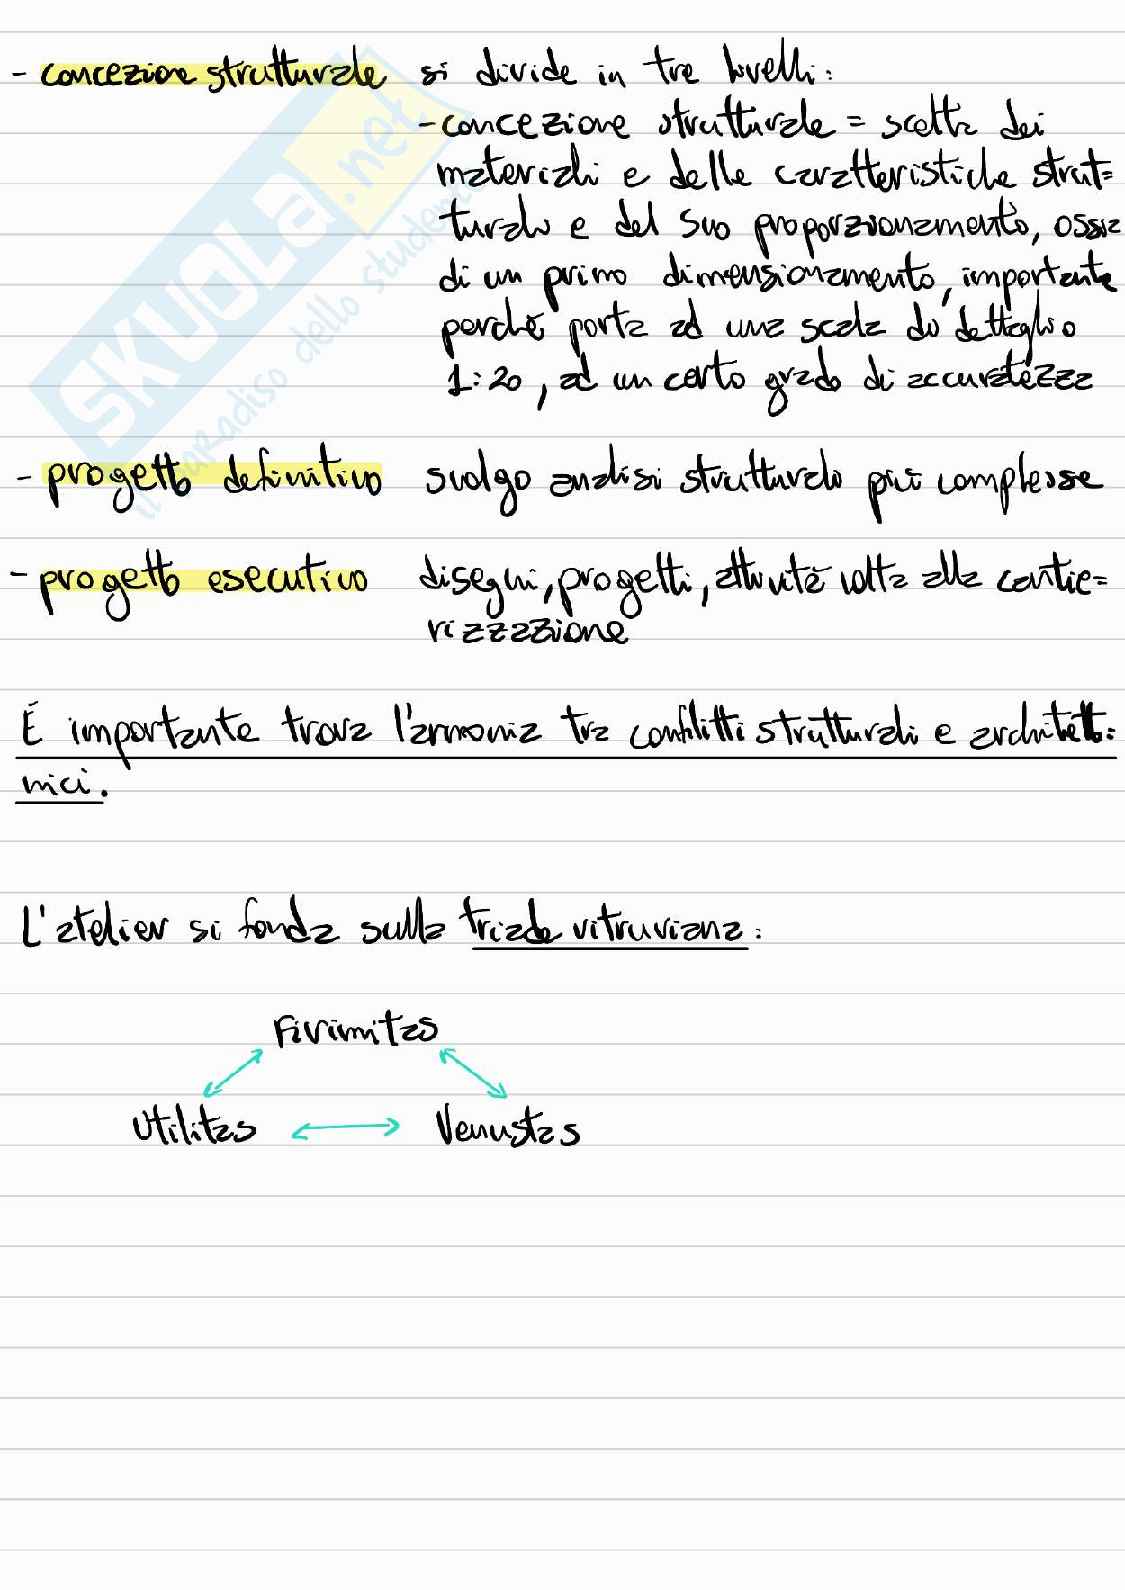 - concezione strutturale si divide in tre livelli:
- concezione strutturale = scelta dei
materiali e delle caratteristiche strut=
turali e del suo proporzionamento, ossia
di un primo dimensionamento, importante
perché porta ad una scala di dettaglio
1:20, ad un certo grado di accuratezza
- progetto definitivo svolgo analisi strutturali più complesse
- progetto esecutivo disegni, progetti, attività volta alla cantie=
rizzazione
É importante trova l'armonia tra conflitti strutturali e architetto=
nici.
L'atelier si fonda sulla triade vitruviana:
Firimitas
Utilitas Venustas
SKUOLA.net
il paradiso dello studente